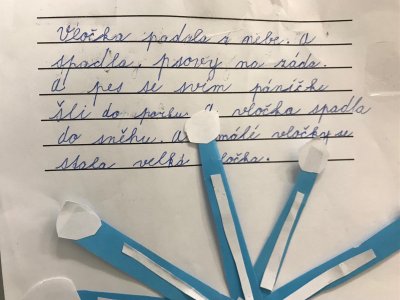 Vločka padala z nebe. A
spadla, psovy na záda.
A pes se svím páníčke
šli do parku. A vločka spadla
do sněhu. A malé vločky se
stala velká vločka.